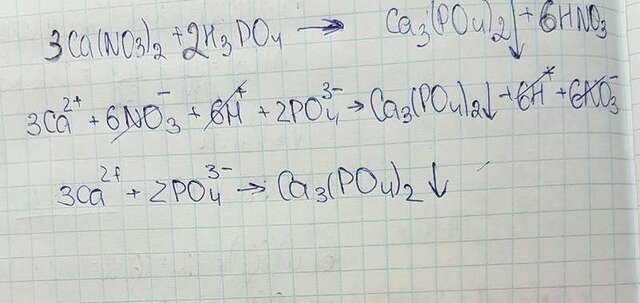 3Ca(NO3)2 + 2H3PO4 → Ca3(PO4)2↓ + 6HNO3
3Ca²⁺ + 6NO3⁻ + 6H⁺ + 2PO4³⁻ → Ca3(PO4)2↓ + 6H⁺ + 6NO3⁻
3Ca²⁺ + 2PO4³⁻ → Ca3(PO4)2↓